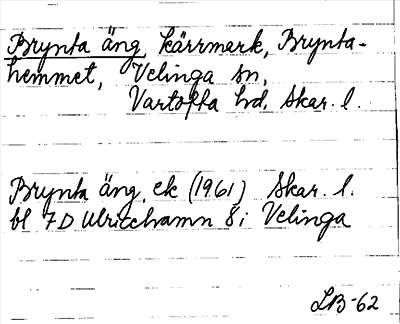 Brynta äng, kärrmark, Brynta-
hemmet, Velinga sn,
Vartofta hd, Skar. l.
Brynta äng, ek (1961) Skar. l.
bl 7D Ulricehamn 8i Velinga
LB-62